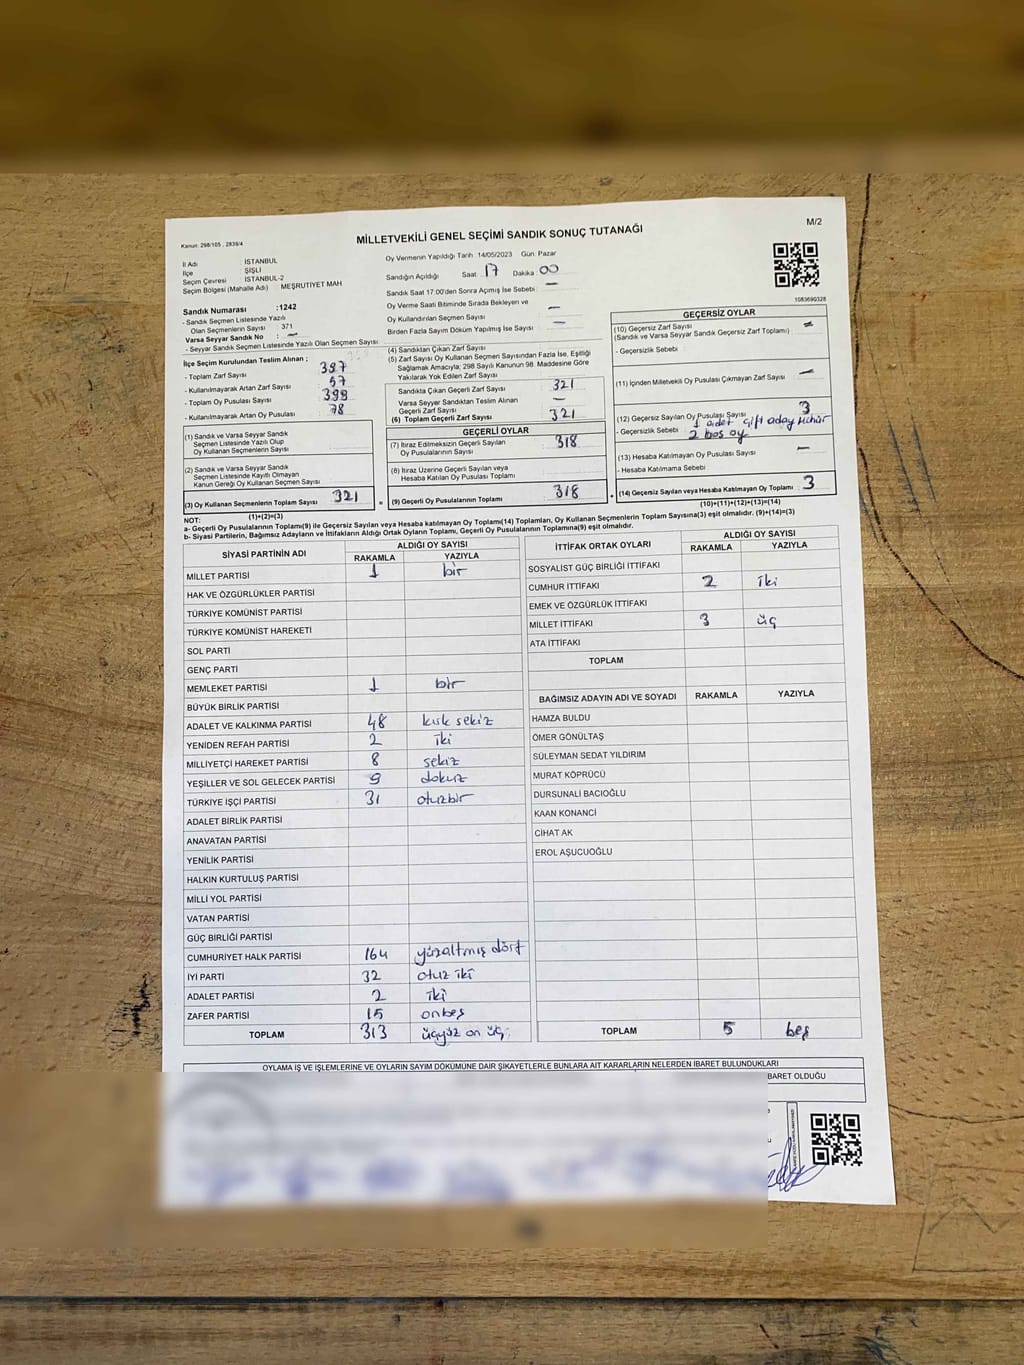 M/2
MİLLETVEKİLİ GENEL SEÇİMİ SANDIK SONUÇ TUTANAĞI
Kanun: 298/105 , 2839/4
İl Adı : İSTANBUL
İlçe : ŞİŞLİ
Seçim Çevresi : İSTANBUL-2
Seçim Bölgesi (Mahalle Adı) : MEŞRUTİYET MAH
Sandık Numarası :1242
- Sandık Seçmen Listesinde Yazılı
Olan Seçmenlerin Sayısı : 371
Varsa Seyyar Sandık No : —
- Seyyar Sandık Seçmen Listesinde Yazılı Olan Seçmen Sayısı
Oy Vermenin Yapıldığı Tarih 14/05/2023 Gün: Pazar
Sandığın Açıldığı Saat 17 Dakika 00
Sandık Saat 17:00'den Sonra Açımış İse Sebebi : —
Oy Verme Saati Bitiminde Sırada Bekleyen ve
Oy Kullandırılan Seçmen Sayısı : —
Birden Fazla Sayım Döküm Yapılmış İse Sayısı : —
1083690328
İlçe Seçim Kurulundan Teslim Alınan ;
- Toplam Zarf Sayısı : 397
- Kullanılmayarak Artan Zarf Sayısı : 57
- Toplam Oy Pusulası Sayısı : 399
- Kullanılmayarak Artan Oy Pusulası : 78
(1) Sandık ve Varsa Seyyar Sandık
Seçmen Listesinde Yazılı Olup
Oy Kullanan Seçmenlerin Sayısı :
(2) Sandık ve Varsa Seyyar Sandık
Seçmen Listesinde Kayıtlı Olmayan
Kanun Gereği Oy Kullanan Seçmen Sayısı :
(3) Oy Kullanan Seçmenlerin Toplam Sayısı : 321
(1)+(2)=(3)
(4) Sandıktan Çıkan Zarf Sayısı :
(5) Zarf Sayısı Oy Kullanan Seçmen Sayısından Fazla İse, Eşitliği
Sağlamak Amacıyla; 298 Sayılı Kanunun 98. Maddesine Göre
Yakılarak Yok Edilen Zarf Sayısı :
Sandıkta Çıkan Geçerli Zarf Sayısı : 321
Varsa Seyyar Sandıktan Teslim Alınan
Geçerli Zarf Sayısı : —
(6) Toplam Geçerli Zarf Sayısı : 321
GEÇERLİ OYLAR
(7) İtiraz Edilmeksizin Geçerli Sayılan
Oy Pusulalarının Sayısı : 318
(8) İtiraz Üzerine Geçerli Sayılan veya
Hesaba Katılan Oy Pusulası Toplamı :
= (9) Geçerli Oy Pusulalarının Toplamı : 318
GEÇERSİZ OYLAR
(10) Geçersiz Zarf Sayısı
(Sandık ve Varsa Seyyar Sandık Geçersiz Zarf Toplamı) :
- Geçersizlik Sebebi :
(11) İçinden Milletvekili Oy Pusulası Çıkmayan Zarf Sayısı : —
(12) Geçersiz Sayılan Oy Pusulası Sayısı : 3
- Geçersizlik Sebebi : 1 adet çift aday mühür
2 boş oy
(13) Hesaba Katılmayan Oy Pusulası Sayısı : —
- Hesaba Katılmama Sebebi :
+ (14) Geçersiz Sayılan veya Hesaba Katılmayan Oy Toplamı : 3
(10)+(11)+(12)+(13)=(14)
NOT:
a- Geçerli Oy Pusulalarının Toplamı(9) ile Geçersiz Sayılan veya Hesaba katılmayan Oy Toplamı(14) Toplamları, Oy Kullanan Seçmenlerin Toplam Sayısına(3) eşit olmalıdır. (9)+(14)=(3)
b- Siyasi Partilerin, Bağımsız Adayların ve İttifakların Aldığı Ortak Oyların Toplamı, Geçerli Oy Pusulalarının Toplamına(9) eşit olmalıdır.
SİYASİ PARTİNİN ADI ALDIĞI OY SAYISI
RAKAMLA YAZIYLA
MİLLET PARTİSİ 1 bir
HAK VE ÖZGÜRLÜKLER PARTİSİ
TÜRKİYE KOMÜNİST PARTİSİ
TÜRKİYE KOMÜNİST HAREKETİ
SOL PARTİ
GENÇ PARTİ
MEMLEKET PARTİSİ 1 bir
BÜYÜK BİRLİK PARTİSİ
ADALET VE KALKINMA PARTİSİ 48 kırk sekiz
YENİDEN REFAH PARTİSİ 2 iki
MİLLİYETÇİ HAREKET PARTİSİ 8 sekiz
YEŞİLLER VE SOL GELECEK PARTİSİ 9 dokuz
TÜRKİYE İŞÇİ PARTİSİ 31 otuzbir
ADALET BİRLİK PARTİSİ
ANAVATAN PARTİSİ
YENİLİK PARTİSİ
HALKIN KURTULUŞ PARTİSİ
MİLLİ YOL PARTİSİ
VATAN PARTİSİ
GÜÇ BİRLİĞİ PARTİSİ
CUMHURİYET HALK PARTİSİ 164 yüzaltmış dört
İYİ PARTİ 32 otuz iki
ADALET PARTİSİ 2 iki
ZAFER PARTİSİ 15 onbeş
TOPLAM 313 üçyüz on üç
İTTİFAK ORTAK OYLARI ALDIĞI OY SAYISI
RAKAMLA YAZIYLA
SOSYALİST GÜÇ BİRLİĞİ İTTİFAKI
CUMHUR İTTİFAKI 2 iki
EMEK VE ÖZGÜRLÜK İTTİFAKI
MİLLET İTTİFAKI 3 üç
ATA İTTİFAKI
TOPLAM
BAĞIMSIZ ADAYIN ADI VE SOYADI RAKAMLA YAZIYLA
HAMZA BULDU
ÖMER GÖNÜLTAŞ
SÜLEYMAN SEDAT YILDIRIM
MURAT KÖPRÜCÜ
DURSUNALİ BACIOĞLU
KAAN KONANCİ
CİHAT AK
EROL AŞUCUOĞLU
TOPLAM 5 beş
OYLAMA İŞ VE İŞLEMLERİNE VE OYLARIN SAYIM DÖKÜMÜNE DAİR ŞİKAYETLERLE BUNLARA AİT KARARLARIN NELERDEN İBARET BULUNDUKLARI
BARET OLDUĞU